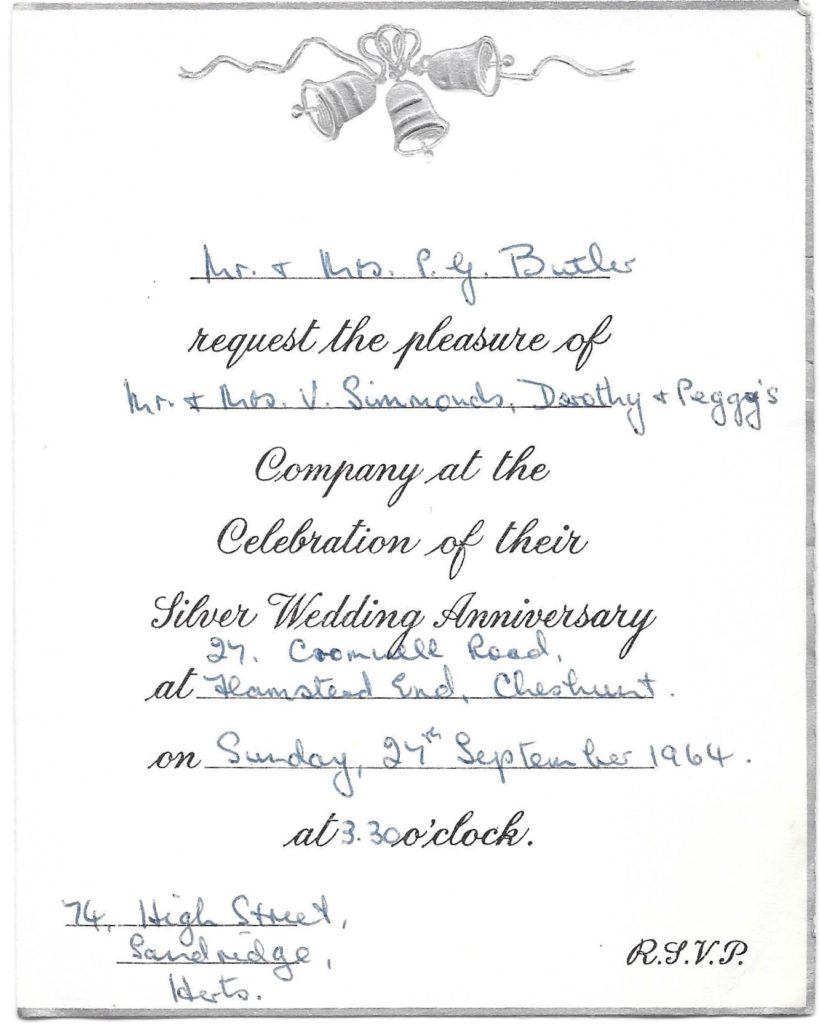 Mr. + Mrs. P. G. Butler
request the pleasure of
Mr. + Mrs. V. Simmonds, Dorothy + Peggy's
Company at the
Celebration of their
Silver Wedding Anniversary
27. Cromwell Road,
at Flamstead End, Cheshunt.
on Sunday, 27th September 1964.
at 3.30 o'clock.
74, High Street,
Sandridge,
Herts.
R.S.V.P.